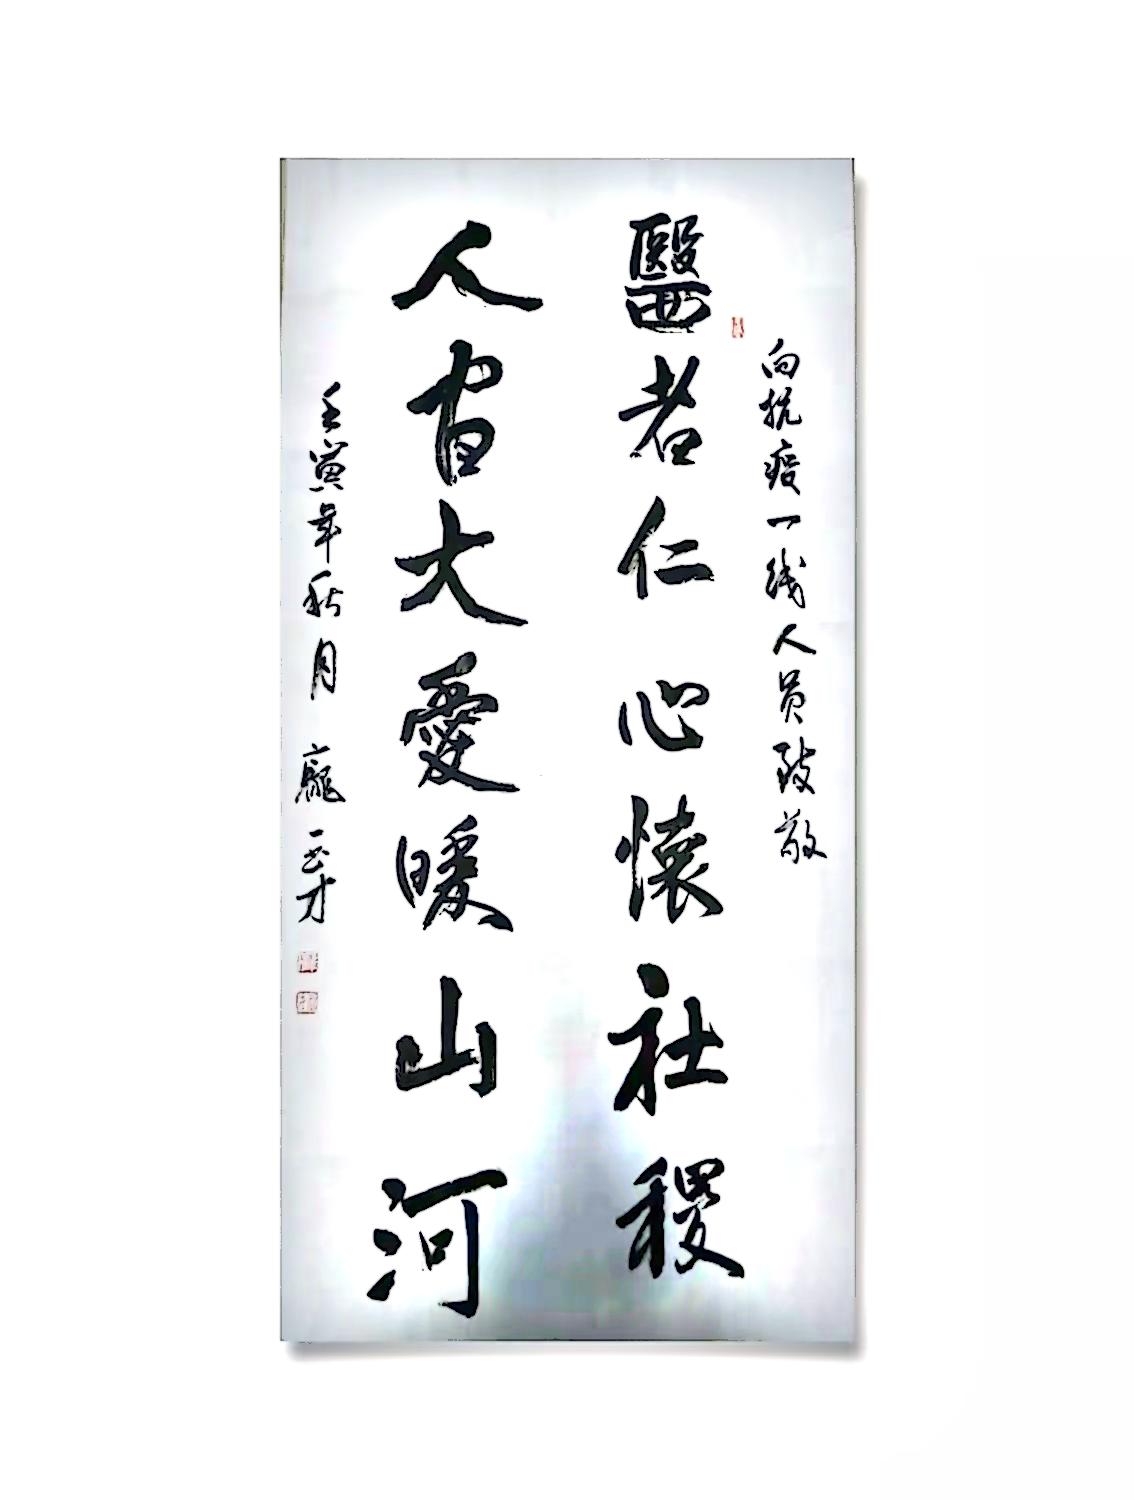 向抗疫一线人员致敬
醫者仁心懷社稷
人间大愛暖山河
壬寅年秋月 龐正才